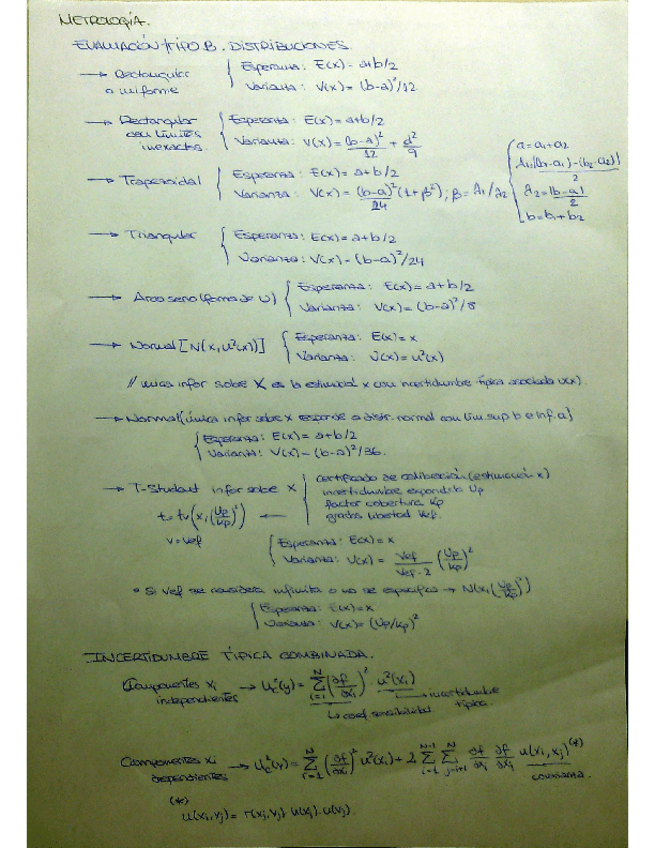 METROLOGÍA.
EVALUACIÓN TIPO B. DISTRIBUCIONES.
→ Rectangular o uniforme { Esperanza: E(x) = a+b/2
Varianza: V(x) = (b-a)²/12
→ Rectangular con límites inexactos. { Esperanza: E(x) = a+b/2
Varianza: V(x) = (b-a)²/12 + d²/9
→ Trapezoidal { Esperanza: E(x) = a+b/2
Varianza: V(x) = (b-a)²(1+β²)/24 ; β = λ1/λ2 { a = a1+a2
λ1 = |(b1-a1)-(b2-a2)|/2
λ2 = |b-a|/2
b = b1+b2
→ Triangular { Esperanza: E(x) = a+b/2
Varianza: V(x) = (b-a)²/24
→ Arco seno (forma de U) { Esperanza: E(x) = a+b/2
Varianza: V(x) = (b-a)²/8
→ Normal [N(x, u²(x))] { Esperanza: E(x) = x
Varianza: V(x) = u²(x)
// única infor sobre X es la estimación x con incertidumbre típica asociada u(x).
→ Normal (única infor sobre x responde a distr. normal con lím. sup b e inf. a)
{ Esperanza: E(x) = a+b/2
Varianza: V(x) = (b-a)²/36.
→ T-Student infor sobre X { certificado de calibración (estimación x)
incertidumbre expandida Up
factor cobertura Kp
grados libertad Vef.
t = tv(x, (Up/Kp)²) ←
v = Vef
{ Esperanza: E(x) = x
Varianza: V(x) = Vef/Vef-2 (Up/Kp)²
• Si Vef se considera infinita o no se especifica → N(x, (Up/Kp)²)
{ Esperanza: E(x) = x
Varianza: V(x) = (Up/Kp)²
INCERTIDUMBRE TÍPICA COMBINADA.
Componentes xi independientes → Uc²(y) = Σ_{i=1}^{N} (∂f/∂xi)² u²(xi) → incertidumbre típica.
↳ coef. sensibilidad
Componentes xi dependientes → Uc²(Y) = Σ_{i=1}^{N} (∂f/∂xi)² u²(xi) + 2 Σ_{i=1}^{N-1} Σ_{j=i+1}^{N} ∂f/∂xi ∂f/∂xj u(xi, xj) (*)
covarianza.
(*)
u(xi, xj) = r(xi, xj) u(xi) · u(xj).